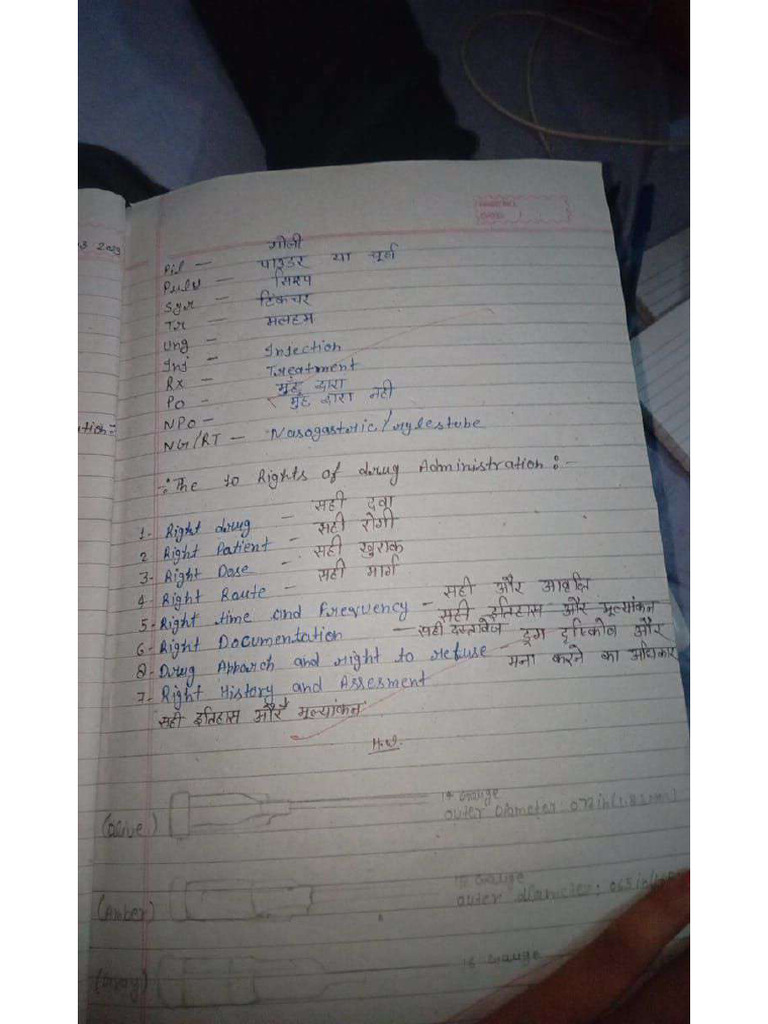 3 2023
Pil — गोली
Pulv — पाउडर या चूर्ण
Syr — सिरप
Tr — टिंकचर
Ung — मलहम
Inj — Injection
Rx — Treatment
Po — मुंह द्वारा
NPO — मुंह द्वारा नही
NG/RT — Nasogastric/rylestube
ation:-
The 10 Rights of drug Administration:-
1- Right drug — सही दवा
2 Right Patient — सही रोगी
3- Right Dose — सही खुराक
4- Right Route — सही मार्ग
5- Right time and Frequency — सही और आवृति
6- Right Documentation — सही इतिहास और मूल्यांकन
सही दस्तावेज
8- Drug Apparch and right to refuse — ड्रग दृष्टिकोण और
मना करने का अधिकार
7- Right History and Assesment
सही इतिहास और मूल्यांकन
14 Gauge
outer Diameter
(Amber)
Gauge
outer
16 Gauge